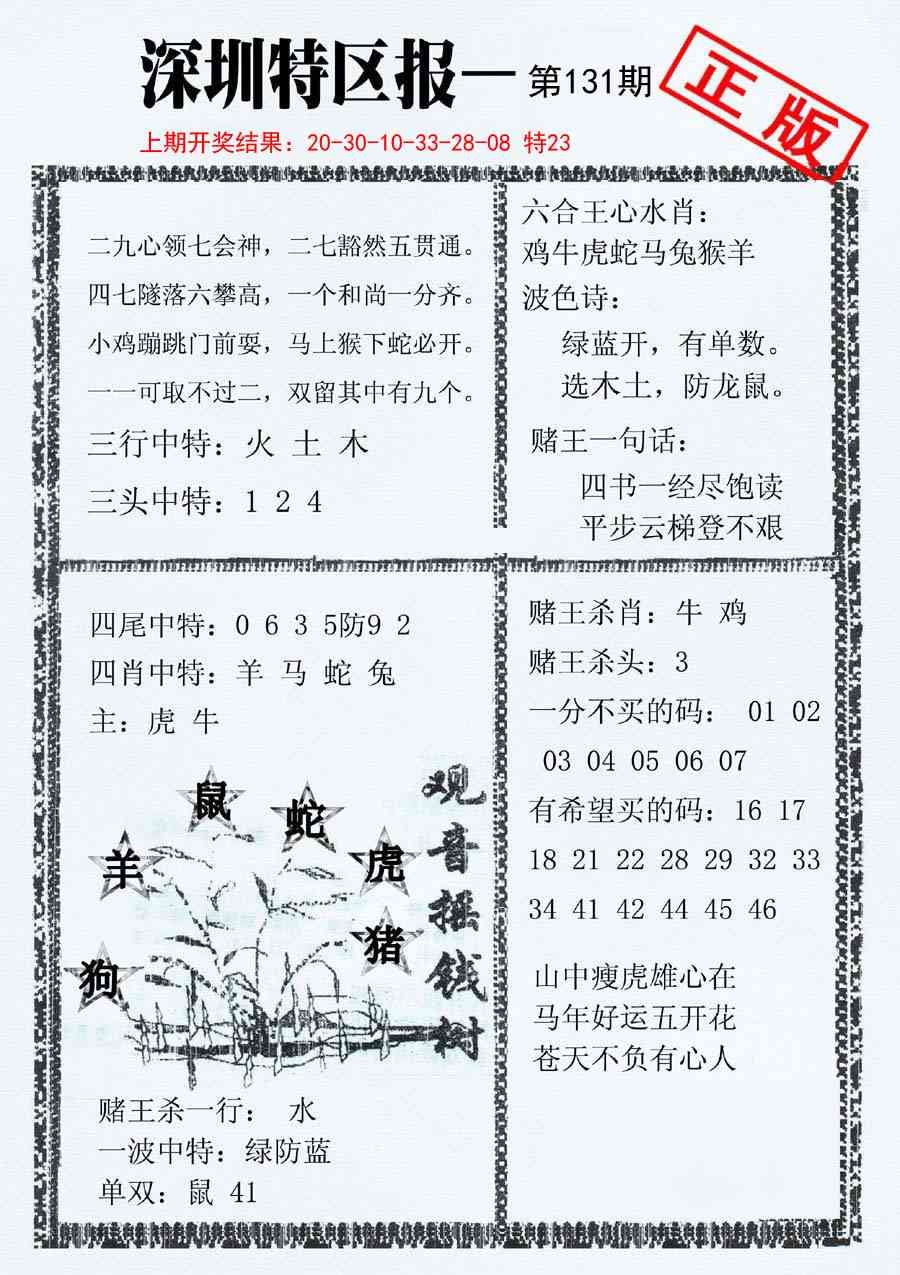 深圳特区报一 第131期
正版
上期开奖结果：20-30-10-33-28-08 特23
二九心领七会神，二七豁然五贯通。
四七隧落六攀高，一个和尚一分齐。
小鸡蹦跳门前耍，马上猴下蛇必开。
一一可取不过二，双留其中有九个。
三行中特：火 土 木
三头中特：1 2 4
六合王心水肖：
鸡牛虎蛇马兔猴羊
波色诗：
绿蓝开，有单数。
选木土，防龙鼠。
赌王一句话：
四书一经尽饱读
平步云梯登不艰
四尾中特：0 6 3 5防9 2
四肖中特：羊 马 蛇 兔
主：虎 牛
鼠
蛇
羊
虎
猪
狗
观音摇钱树
赌王杀一行： 水
一波中特：绿防蓝
单双：鼠 41
赌王杀肖：牛 鸡
赌王杀头：3
一分不买的码： 01 02
03 04 05 06 07
有希望买的码：16 17
18 21 22 28 29 32 33
34 41 42 44 45 46
山中瘦虎雄心在
马年好运五开花
苍天不负有心人